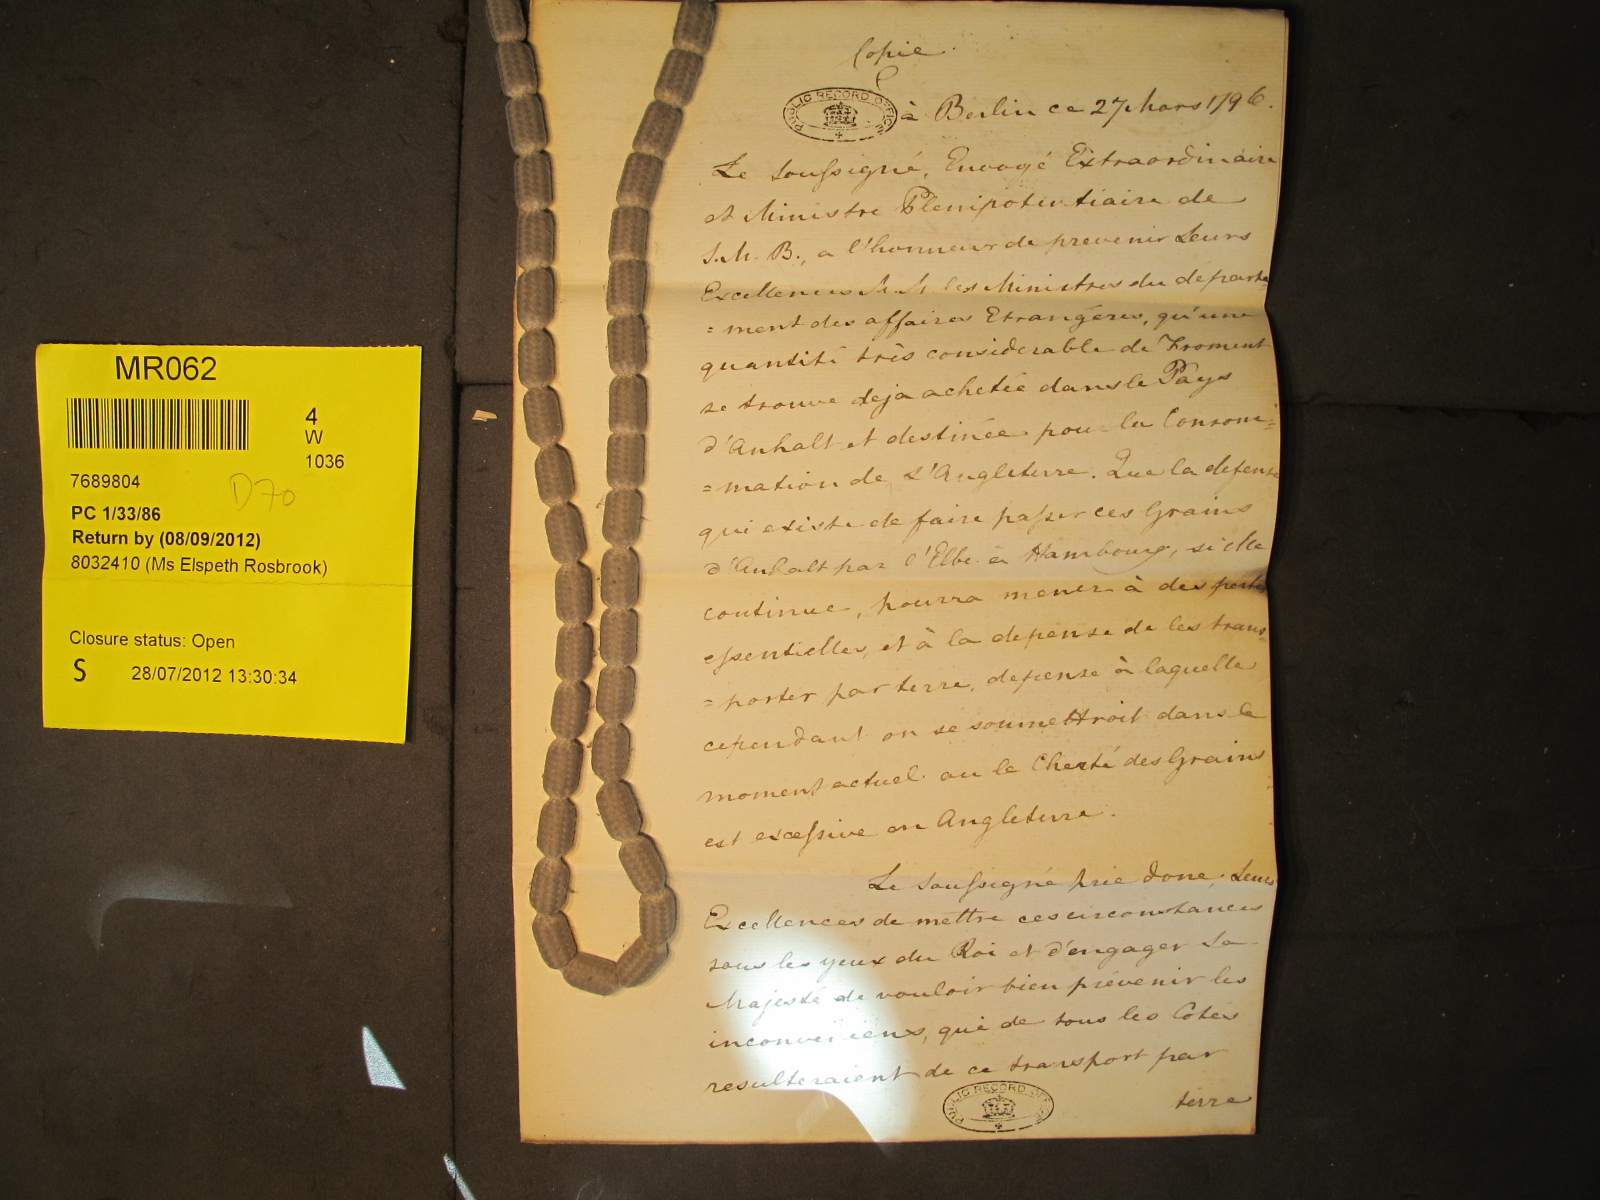 MR062
4
W
1036
7689804
D70
PC 1/33/86
Return by (08/09/2012)
8032410 (Ms Elspeth Rosbrook)
Closure status: Open
S 28/07/2012 13:30:34
Copie
PUBLIC RECORD OFFICE
à Berlin ce 27 Mars 1796.
Le soussigné, Envoyé Extraordinaire
et Ministre Plenipotentiaire de
S. M. B., a l'honneur de prevenir Leurs
Excellences M.M. les Ministres du departe=
=ment des affaires Etrangéres, qu'une
quantité très considerable de Froment
se trouve deja achetée dans le Pays
d'Anhalt et destinée pour la Consom=
=mation de L'Angleterre. Que la defense
qui existe de faire passer ces Grains
d'Anhalt par l'Elbe à Hambourg, si elle
continue, pourra mener à des pertes
essentielles, et à la depense de les trans=
=porter par terre, depense à laquelle
cependant on se soumettroit dans le
moment actuel ou la Cherté des Grains
est excessive en Angleterre.
Le soussigné prie donc, Leurs
Excellences de mettre ces circonstances
sous les yeux du Roi et d'engager Sa
Majesté de vouloir bien prévenir les
inconveniens, qui de tous les Cotés
resulteraient de ce transport par
terre
PUBLIC RECORD OFFICE